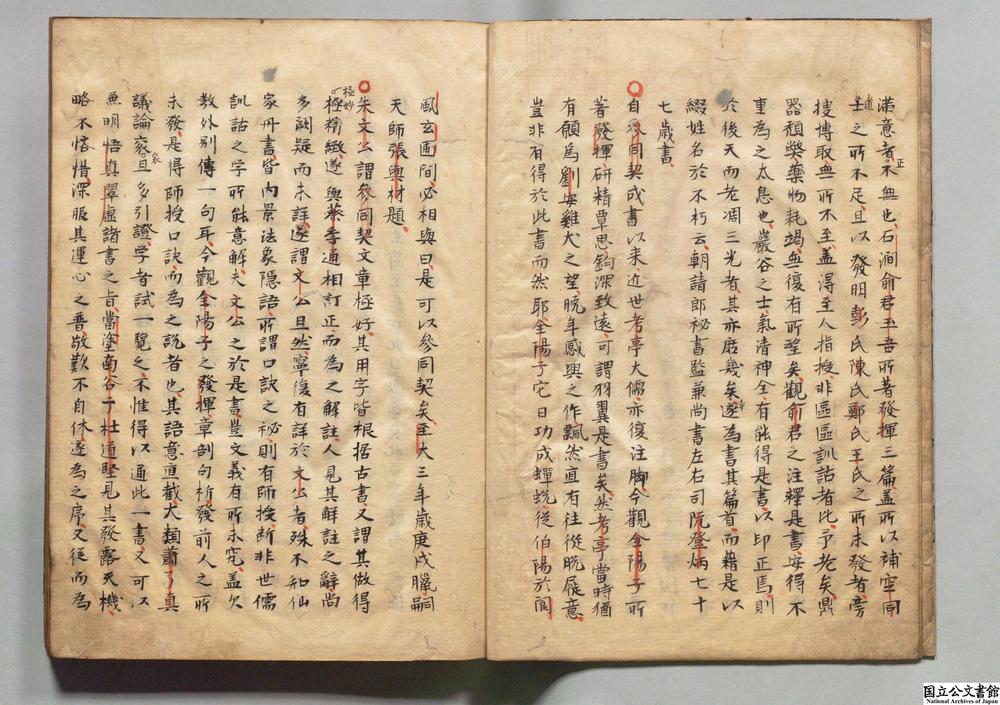 滿意者不無也石澗俞君玉吾所著發揮三篇盖所以補空同
道士之所不足且以發明彭氏陳氏鄭氏王氏之所未發者旁
搜博取無所不至盖得至人指授非區區訓詁者比予老矣鼎
器頹弊藥物耗竭無復有所望矣觀俞君之注釋是書安得不
重為之太息也巖谷之士氣清神全有能得是書以印正焉則
於後天而老凋三光者其亦庶幾矣遂為書其篇首而藉是以
綴姓名於不朽云朝請郎秘書監兼尚書左右司阮登炳七十
七歲書
自參同契成書以来近世考亭大儒亦復注脚今觀全陽子所
著發揮研精覃思鉤深致遠可謂羽翼是書矣然考亭當時猶
有願為劉安雞犬之望晩年感興之作飄然直有往從脫屣意
豈非有得於此書而然耶全陽子它日功成蟬蛻從伯陽於閬
風玄圃間必相與曰是可以參同契矣至大三年歲庚戌臘嗣
天師張與材題
朱文公謂參同契文章極好其用字皆根据古書又謂其做得
極妙
極精緻遂與蔡季通相訂正而為之解註人見其解註之辭尚
多闕疑而未詳遂謂文公且然寧復有詳於文公者殊不知仙
家丹書皆內景法象隱語所謂口訣之秘則有師授斷非世儒
訓詁之字所能意解夫文公之於是書豈文義有所未究盖欠
教外別傳一句耳今觀全陽子之發揮章剖句析發前人之所
未發是得師授口訣而為之説者也其語意直截大類蕭了真
議論衮且多引證學者試一覽之不惟得以通此一書又可以
兼明悟真翠虛諸書之旨當塗南谷子杜道堅見其發露天機
略不悋惜深服其運心之普敬歎不自休遂為之序又從而為
国立公文書館
National Archives of Japan